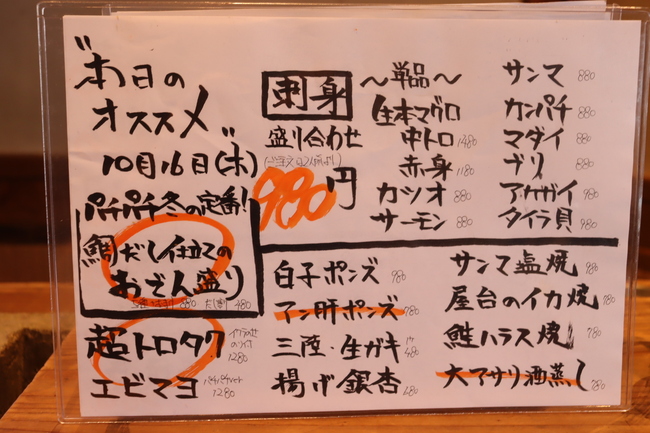 "本日の
オススメ"
10月16日(木)
パチパチ冬の定番!
鯛だし仕立ての
おでん盛り
880
480
超トロタク
1280
エビマヨ
1280
刺身
盛り合わせ
980円
〜単品〜
生本マグロ
中トロ 1480
赤身 1180
カツオ 880
サーモン 880
サンマ 880
カンパチ 880
マダイ 880
ブリ 880
アカガイ 980
タイラ貝 980
白子ポンズ 980
アン肝ポンズ 780
三陸・生ガキ 480
揚げ銀杏 480
サンマ塩焼 980
屋台のイカ焼 980
鮭ハラス焼 780
大アサリ酒蒸し 780